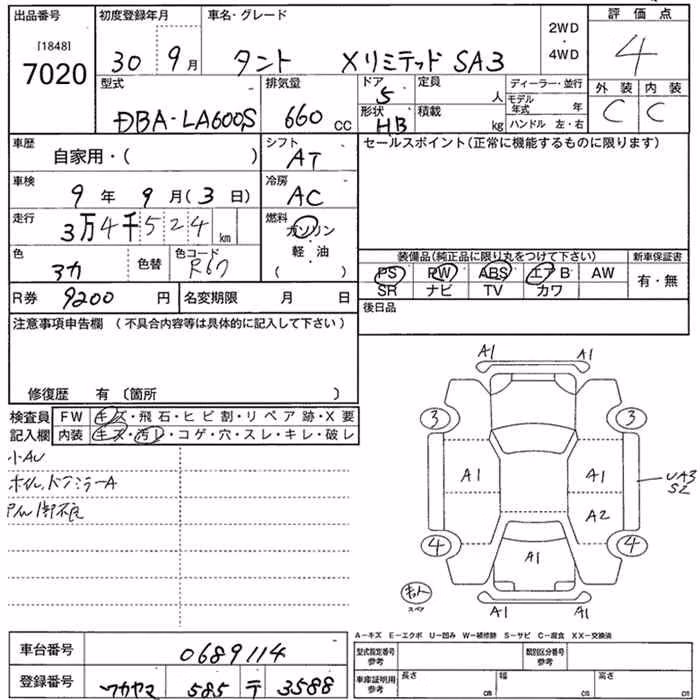 出品番号 初度登録年月 車名・グレード 評価点
[1848]
7020
30 9月 タント Xリミテッド SA3
2WD
・
4WD
4
型式 排気量 ドア 定員 ディーラー・並行 外装 内装
DBA-LA600S 660 cc 5 人 モデル年式 年 C C
形状 積載 ハンドル 左・右
HB kg
車歴 シフト セールスポイント(正常に機能するものに限ります)
自家用・( ) AT
車検 冷房
9年 9月(3日) AC
走行 燃料
3万4千524 km ガソリン
軽・油
( )
色 色替 色コード 装備品(純品に限り丸をつけて下さい) 新車保証書
R67 PS PW ABS エアB AW 有・無
SR ナビ TV カワ
R券 9200 円 名変期限 月 日 後日品
注意事項申告欄 (不具合内容等は具体的に記入して下さい)
修復歴 有 〔箇所 〕
検査員 FW キズ・飛石・ヒビ割・リペア跡・X要
記入欄 内装 キズ・汚レ・コゲ・穴・スレ・キレ・破レ
小AU
ホイル、ドアミラーA
A1 A1
3 3
A1 A1 UA3
S2
A2
4 4
A1
スペア
A1 A1
A-キズ E-エクボ U-凹み W-補修跡 S-サビ C-腐食 XX-交換済
車台番号 0689114
型式指定番号 参考 類別区分番号 参考
登録番号 ワカヤマ 585 テ 3588
車庫証明用 参考 長さ cm 幅 cm 高さ cm